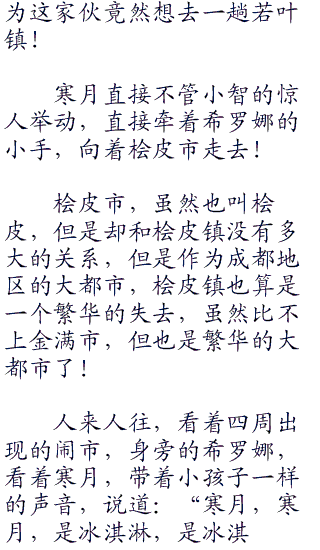 为这家伙竟然想去一趟若叶
镇！
寒月直接不管小智的惊
人举动，直接牵着希罗娜的
小手，向着桧皮市走去！
桧皮市，虽然也叫桧
皮，但是却和桧皮镇没有多
大的关系，但是作为成都地
区的大都市，桧皮镇也算是
一个繁华的失去，虽然比不
上金满市，但也是繁华的大
都市了！
人来人往，看着四周出
现的闹市，身旁的希罗娜，
看着寒月，带着小孩子一样
的声音，说道：“寒月，寒
月，是冰淇淋，是冰淇